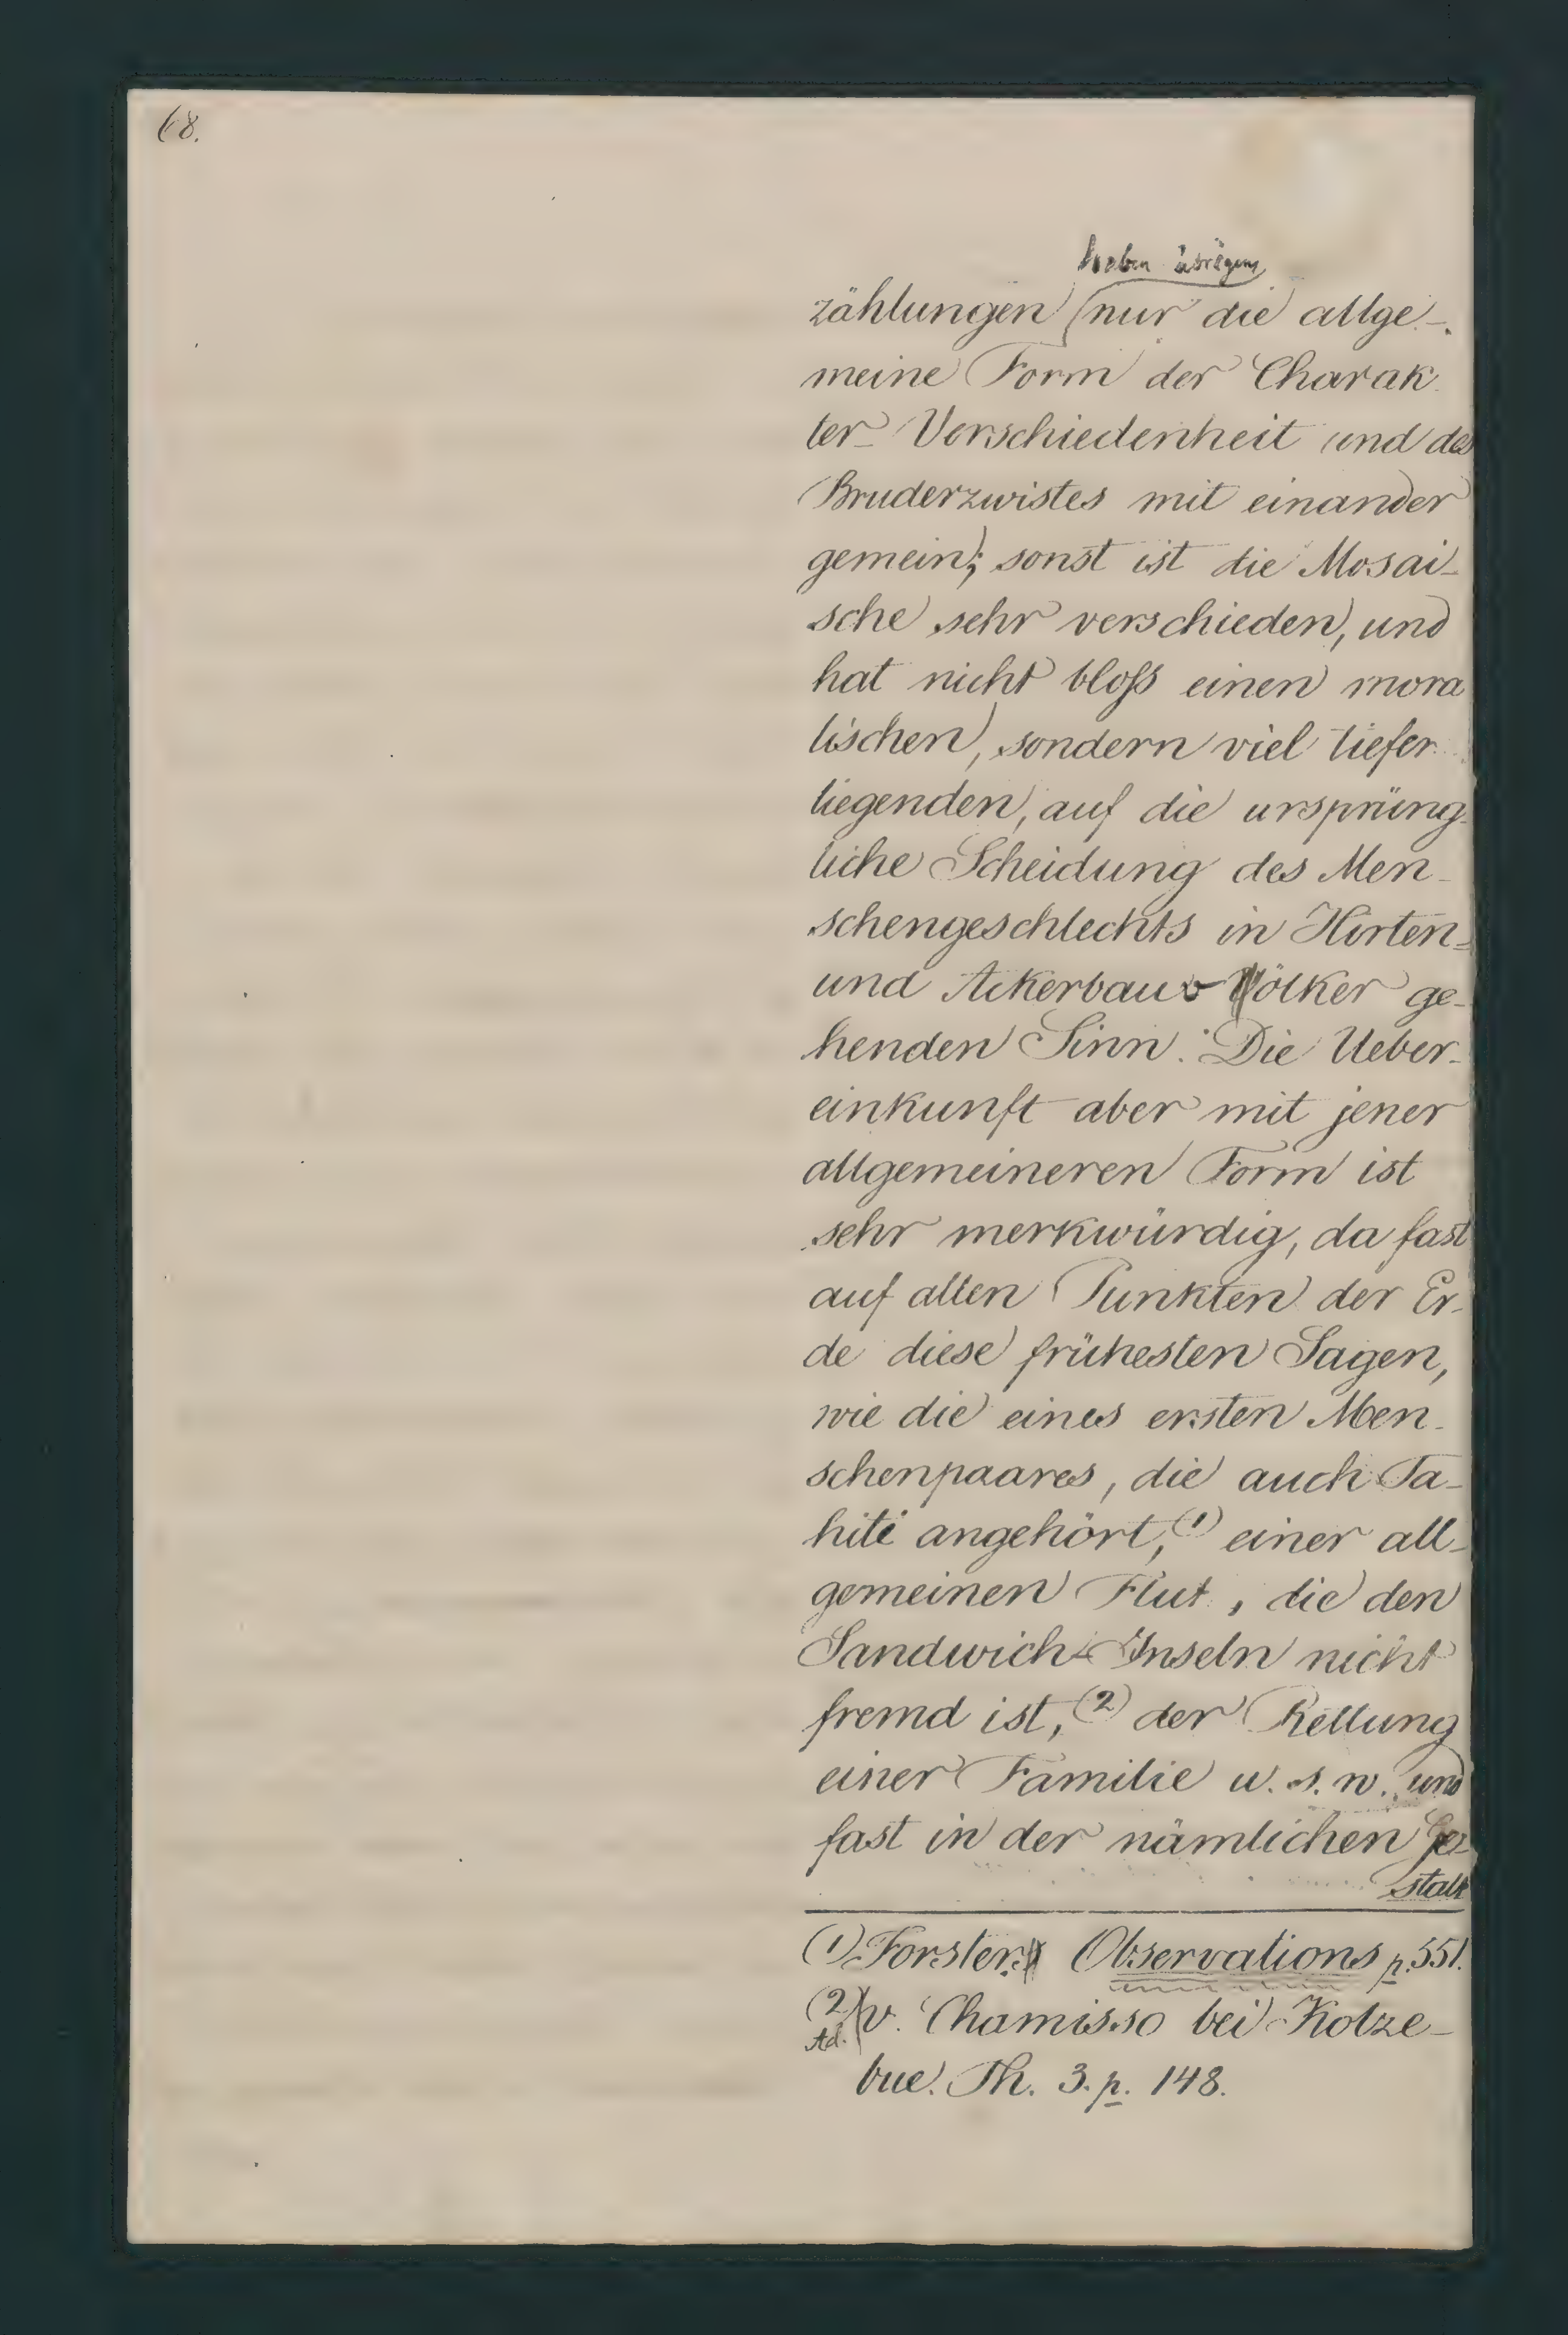 68.
haben übrigens
zählungen nur die allge-
meine Form der Charak
ter-Verschiedenheit und des
Bruderzwistes mit einander
gemein; sonst ist die Mosai-
sche sehr verschieden, und
hat nicht bloß einen mora
lischen, sondern viel tiefer
liegenden, auf die ursprüng-
liche Scheidung des Men-
schengeschlechts in Hirten-
und Ackerbau völker ge-
henden Sinn. Die Ueber-
einkunft aber mit jener
allgemeineren Form ist
sehr merkwürdig, da fast
auf allen Punkten der Er-
de diese frühesten Sagen,
wie die eines ersten Men-
schenpaares, die auch Ta-
hiti angehört, (1) einer all-
gemeinen Flut, die den
Sandwich-Inseln nicht
fremd ist, (2) der Rettung
einer Familie u. s. w. und
fast in der nämlichen Ge-
stalt
(1) Forster Observations p. 551.
(2) Ad. v. Chamisso bei Kotze-
bue. Th. 3. p. 148.